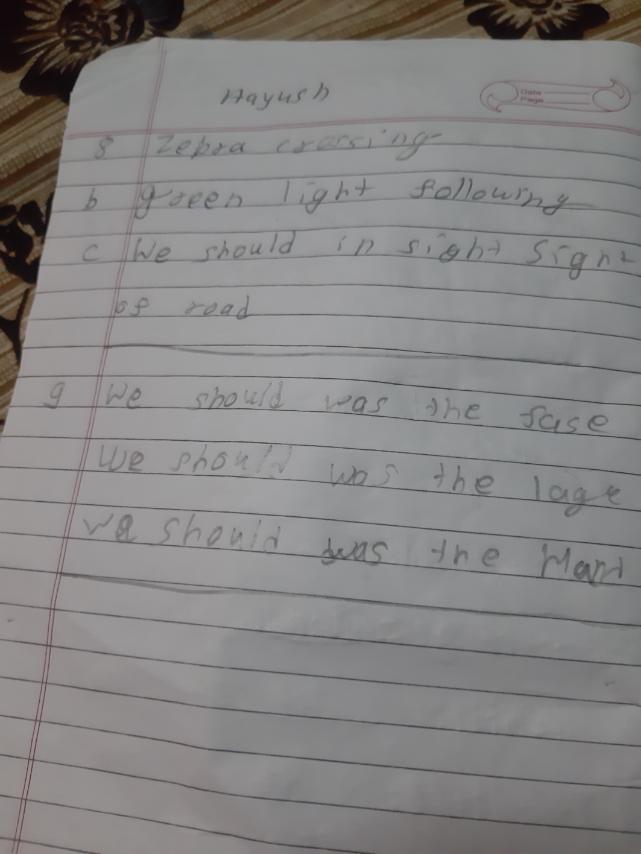 Hayush
Date
Page
8 Zebra crossing
b green light following
c We should in sight Sign
of road
9 We should was the fase
We should was the lage
we should was the Hant